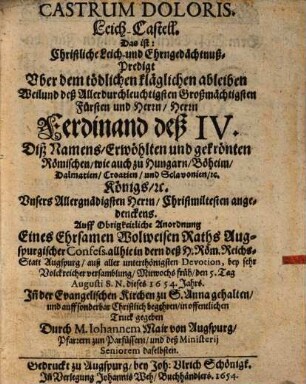 CASTRUM DOLORIS.
Leich-Castell.
Das ist:
Christliche Leich- und Ehrngedächtnuß-
Predigt
Vber dem tödlichen kläglichen ableiben
Weilund deß Allerdurchleuchtigsten Großmächtigsten
Fürsten und Herrn / Herrn
Ferdinand deß IV.
Diß Namens / Erwöhlten und gekrönten
Römischen / wie auch zu Hungarn / Böheim /
Dalmatien / Croatien / und Sclavonien / ec.
Königs / ec.
Vnsers Allergnädigsten Herrn / Christmiltesten ange-
denckens.
Auff Obrigkeitliche Anordnung
Eines Ehrsamen Wolweisen Raths Aug-
spurgischer Confeß. allhie in dern deß H. Röm. Reichs-
Statt Augspurg / auß aller unterthönigsten Devotion, bey sehr
Volckreicher versamblung / Mitwochs früh / den 5. Tag
Augusti S. N. dieses 1654. Jahrs.
In der Evangelischen Kirchen zu S. Anna gehalten /
und auff sonderbar Christlich begehren / in offentlichen
Truck gegeben
Durch M. Iohannem Mair von Augspurg /
Pfarrern zun Parfüssern / und deß Ministerij
Seniorem daselbsten.
Gedruckt zu Augspurg / bey Joh. Vlrich Schönigk.
In Verlegung Johannis Weh / Buchhändlers. 1654.